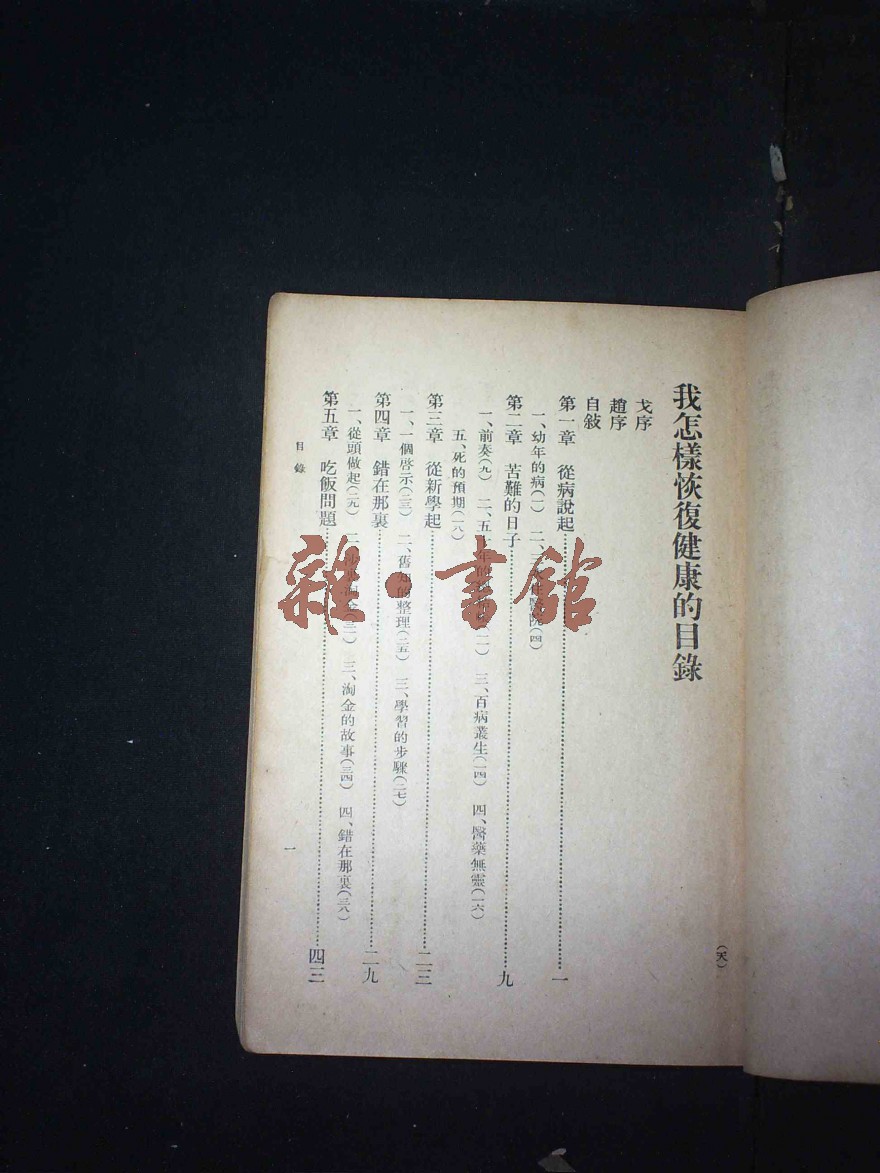 我怎樣恢復健康的目錄
戈序
趙序
自敍
第一章 從病說起 一
一、幼年的病(一) 二、住醫院(四)
第二章 苦難的日子 九
一、前奏(九) 二、五年的 三、百病叢生(一四) 四、醫藥無靈(一六)
五、死的預期(一八)
第三章 從新學起 二三
一、一個啓示(二三) 二、舊知的整理(二五) 三、學習的步驟(二七)
第四章 錯在那裏 二九
一、從頭做起(二九) 二、淘金(三一) 三、淘金的故事(三四) 四、錯在那裏(三八)
第五章 吃飯問題 四三
目錄
一
雜·書館